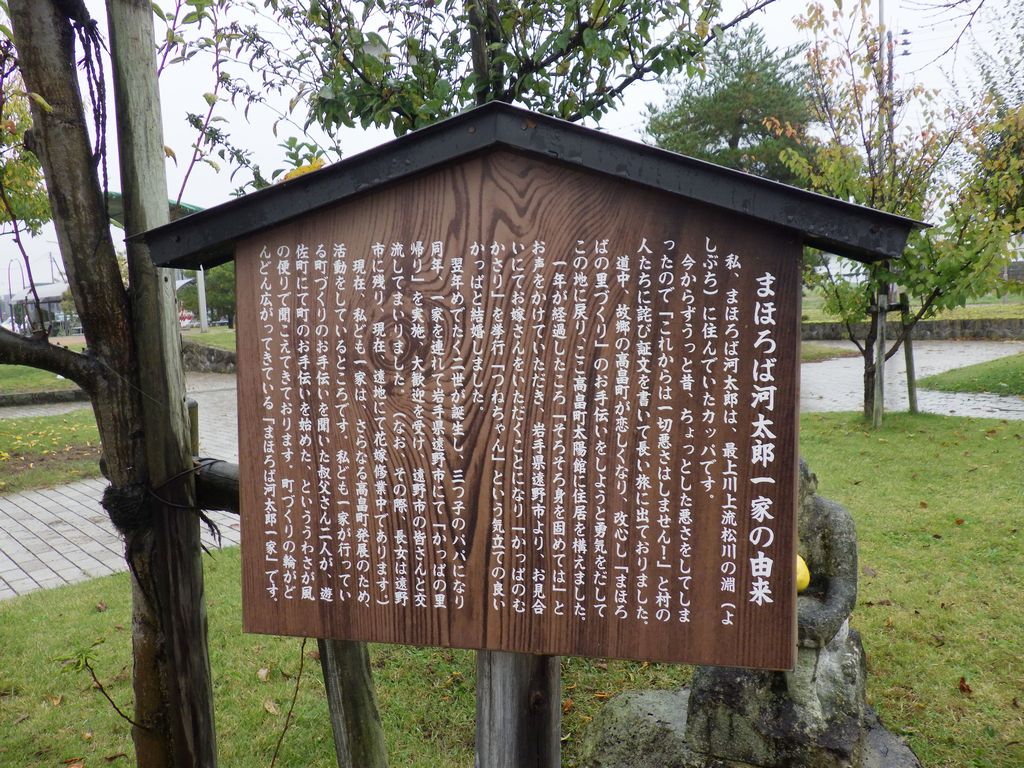 まほろば河太郎一家の由来
私、まほろば河太郎は、最上川上流松川の淵（よ
しぶち）に住んでいたカッパです。
今からずうっと昔、ちょっとした悪さをしてしま
ったので「これからは一切悪さはしません！」と村の
人たちに詫び証文を書いて長い旅に出ておりました。
道中、故郷の高畠町が恋しくなり、改心し「まほろ
ばの里づくり」のお手伝いをしようと勇気をだして
この地に戻り、ここ高畠町太陽館に住居を構えました。
一年が経過したころ「そろそろ身を固めては」と
お声をかけていただき、岩手県遠野市より、お見合
いにてお嫁さんをいただくことになり「かっぱのむ
かさり」を挙行「つねちゃん」という気立ての良い
かっぱと結婚しました。
翌年めでたく二世が誕生し、三つ子のパパになり
同年、一家を連れて岩手県遠野市にて「かっぱの里
帰り」を実施、大歓迎を受け、遠野市の皆さんと交
流してまいりました。（なお、その際、長女は遠野
市に残り、現在、遠地にて花嫁修業中であります。）
現在、私ども一家は、さらなる高畠町発展のため、
活動をしているところです。私ども一家が行ってい
る町づくりのお手伝いを聞いた叔父さん二人が、遊
佐町にて町のお手伝いを始めた、といううわさが風
の便りで聞こえてきております。町づくりの輪がど
んどん広がってきている「まほろば河太郎一家」です。